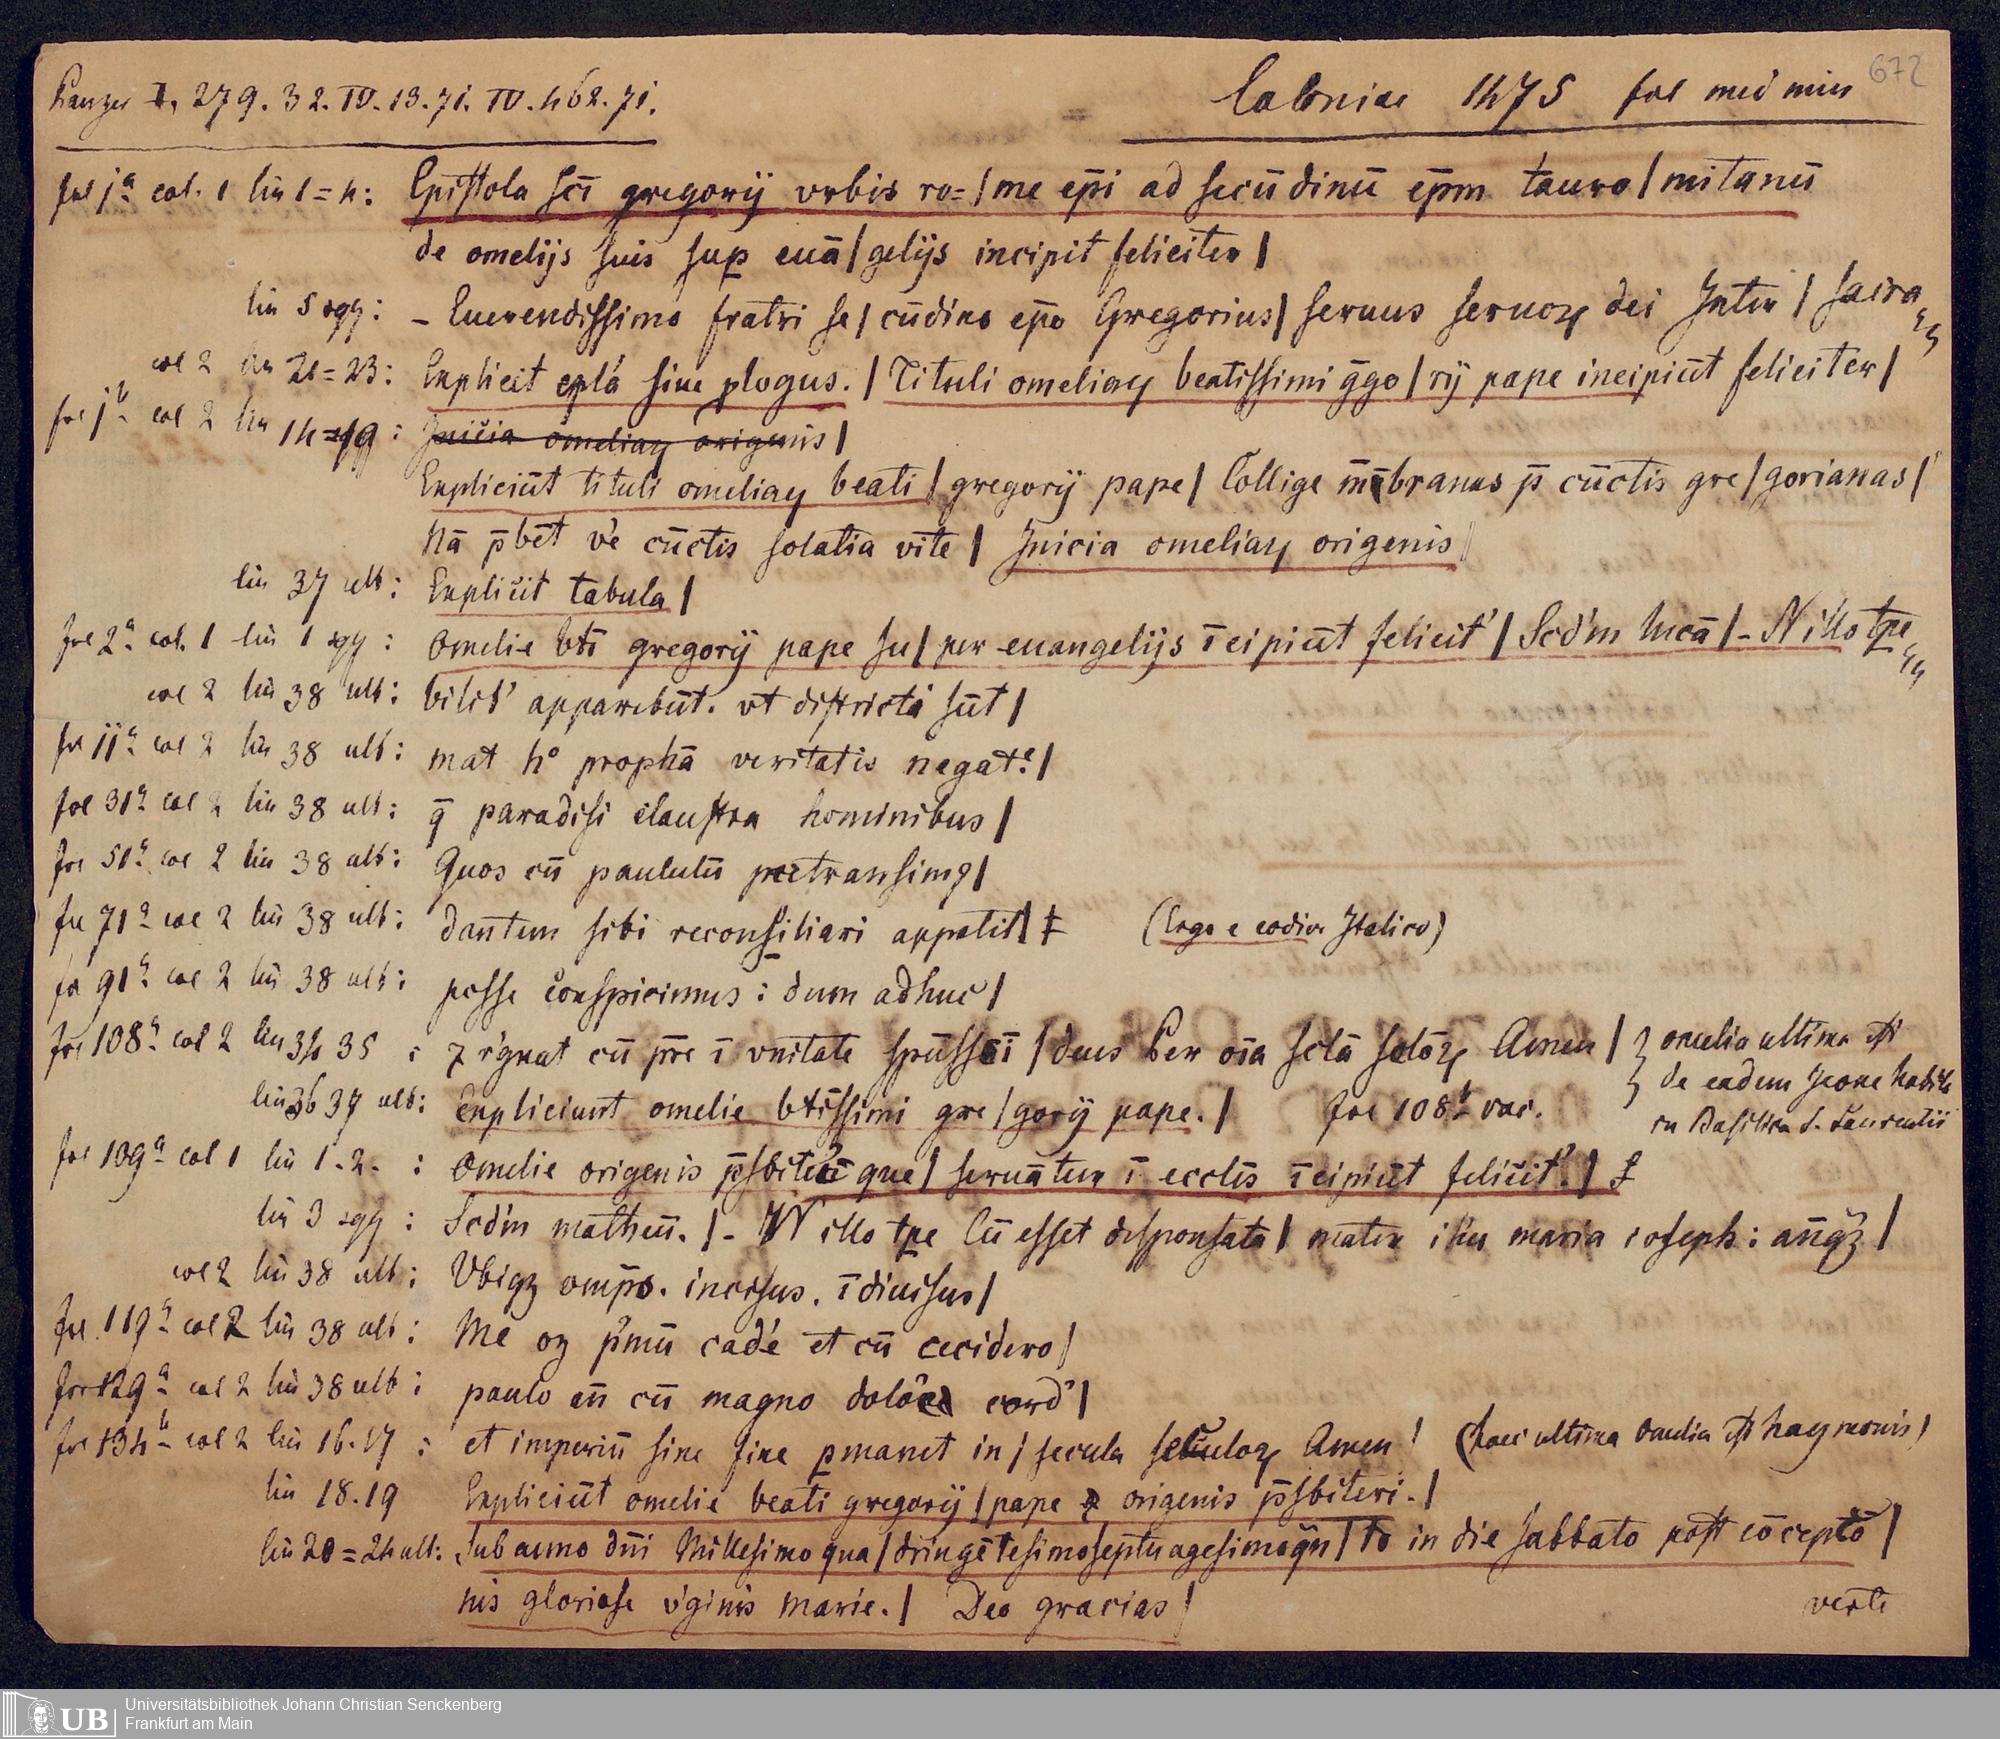 Panzer I, 279. 32. IV. 13. 71. IV. 462. 71.
Coloniae 1475 fol med min 672
fol j a col. 1 lin 1=4: Epistola scī gregorij vrbis ro=/me ep̄i ad secūdinū ep̄m tauro/mitanū
de omelijs suis sup euā/gelijs incipit feliciter/
lin 5 sqq: – Euerendissimo fratri se/cūdino ep̄o Gregorius/ seruus seruoꝝ dei Inter / sacra
col 2 lin 21=23: Explicit ep̄la siue plogus. / Tituli omeliaꝝ beatissimi ḡgo/rij pape incipiūt feliciter/
fol j b col 2 lin 14=19: Inicia omeliaꝝ origenis/
Expliciūt tituli omeliaꝝ beati/ gregorij pape/ Collige mēbranas p̄ cūctis gre/gorianas/
Nā p̄bēt v'e cūctis solatia vite/ Inicia omeliaꝝ origenis/
lin 37 ult: Explicit tabula/
fol 2 a col. 1 lin 1 sqq: Omelie btī gregorij pape su/per euangelijs īcipiūt felicit' / Scd'm lucā/ – N illo tpe
col 2 lin 38 ult: bilit' apparebūt. vt districta sūt/
fol ii a col 2 lin 38 ult: mat h° prophā veritatis negat.'/
fol 31 a col 2 lin 38 ult: q̄ paradisi claustra hominibus/
fol 51 a col 2 lin 38 ult: Quos cū paululū pertransimꝰ/
fol 71 a col 2 lin 38 ult: dantem sibi reconsiliari appetit/ ‡ (Ergo e codice Italico)
fol 91 a col 2 lin 38 ult: posse conspicimus: dum adhuc/
fol 108 a col 2 lin 34 35: ⁊ r'gnat cū p̄re ī vnitate sp̄ūssc̄i / deus Per oīa sclā scloꝝ Amen / } omelia ultima est
lin 36 37 ult: Expliciunt omelie btīssimi gre/gorij pape./ fol 108 b vac. } de eadem habita
in Basilica S. Laurentii
fol 109 a col 1 lin 1.2.: Omelie origenis p̄sbiteri que/ seruātur ī eccl'is īcipiūt felicit'./ ‡
lin 3 sqq: Scd'm matheū./ – N illo tpe Cū esset desponsata/ mater ihu maria ioseph: anꝗ̄ꝫ /
col 2 lin 38 ult: Vbiqꝫ omp̄s. incisus. īdiuisus/
fol 119 a col 2 lin 38 ult: Me oꝫ p'mū cad'e et cū cecidero/
fol 129 a col 2 lin 38 ult: paulo an̄ cū magno dolore cord'/
fol 134 b col 2 lin 16.17: et imperiū sine fine pmanet in / secula seculoꝝ Amen / (haec ultima omelia est haymonis)
lin 18.19 Expliciūt omelie beati gregorij / pape ⁊ origenis p̄sbiteri./
lin 20=24 ult: Sub anno dn̄i Millesimo qua/dringētesimoseptuagesimoqn̄/to in die sabbato post cōceptō/
nis gloriose v'ginis marie./ Deo gracias/
verte
UB
Universitätsbibliothek Johann Christian Senckenberg
Frankfurt am Main